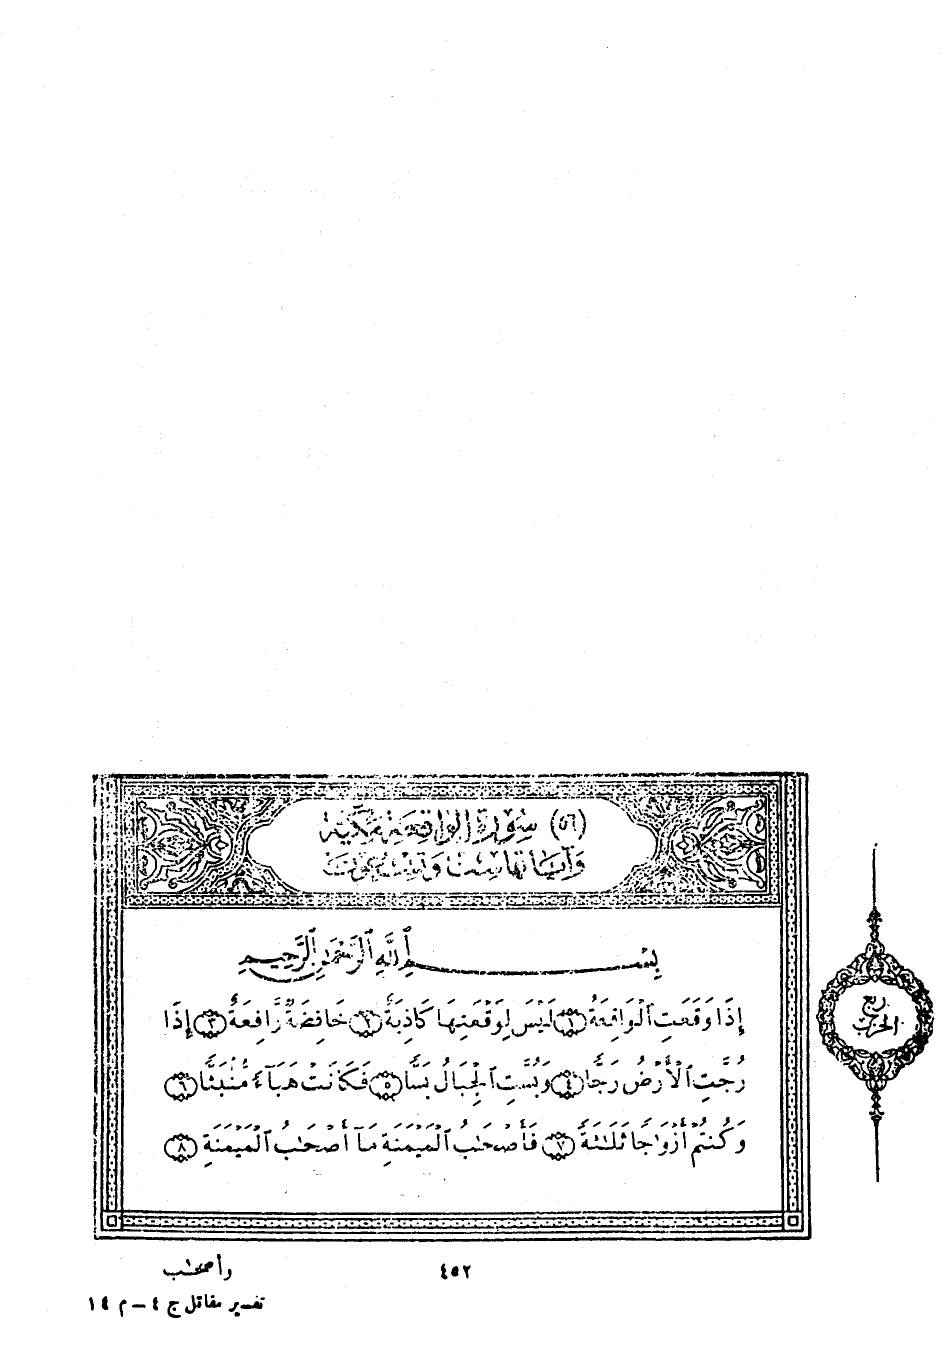 (٥٦) سُورَة الواقِعَة مَكيَّة
وَآيَاتهَا سِت وَتِسْعُونَ
بِسْمِ ٱللَّهِ ٱلرَّحْمَٰنِ ٱلرَّحِيمِ
إِذَا وَقَعَتِ ٱلْوَاقِعَةُ ١ لَيْسَ لِوَقْعَتِهَا كَاذِبَةٌ ٢ خَافِضَةٌ رَّافِعَةٌ ٣ إِذَا
رُجَّتِ ٱلْأَرْضُ رَجًّا ٤ وَبُسَّتِ ٱلْجِبَالُ بَسًّا ٥ فَكَانَتْ هَبَآءً مُّنۢبَثًّا ٦
وَكُنتُمْ أَزْوَٰجًا ثَلَٰثَةً ٧ فَأَصْحَٰبُ ٱلْمَيْمَنَةِ مَآ أَصْحَٰبُ ٱلْمَيْمَنَةِ ٨
ربع
الحزب
وأصحٰب
٤٥٢
تفسير مقاتل ج ٤ – م ١٤